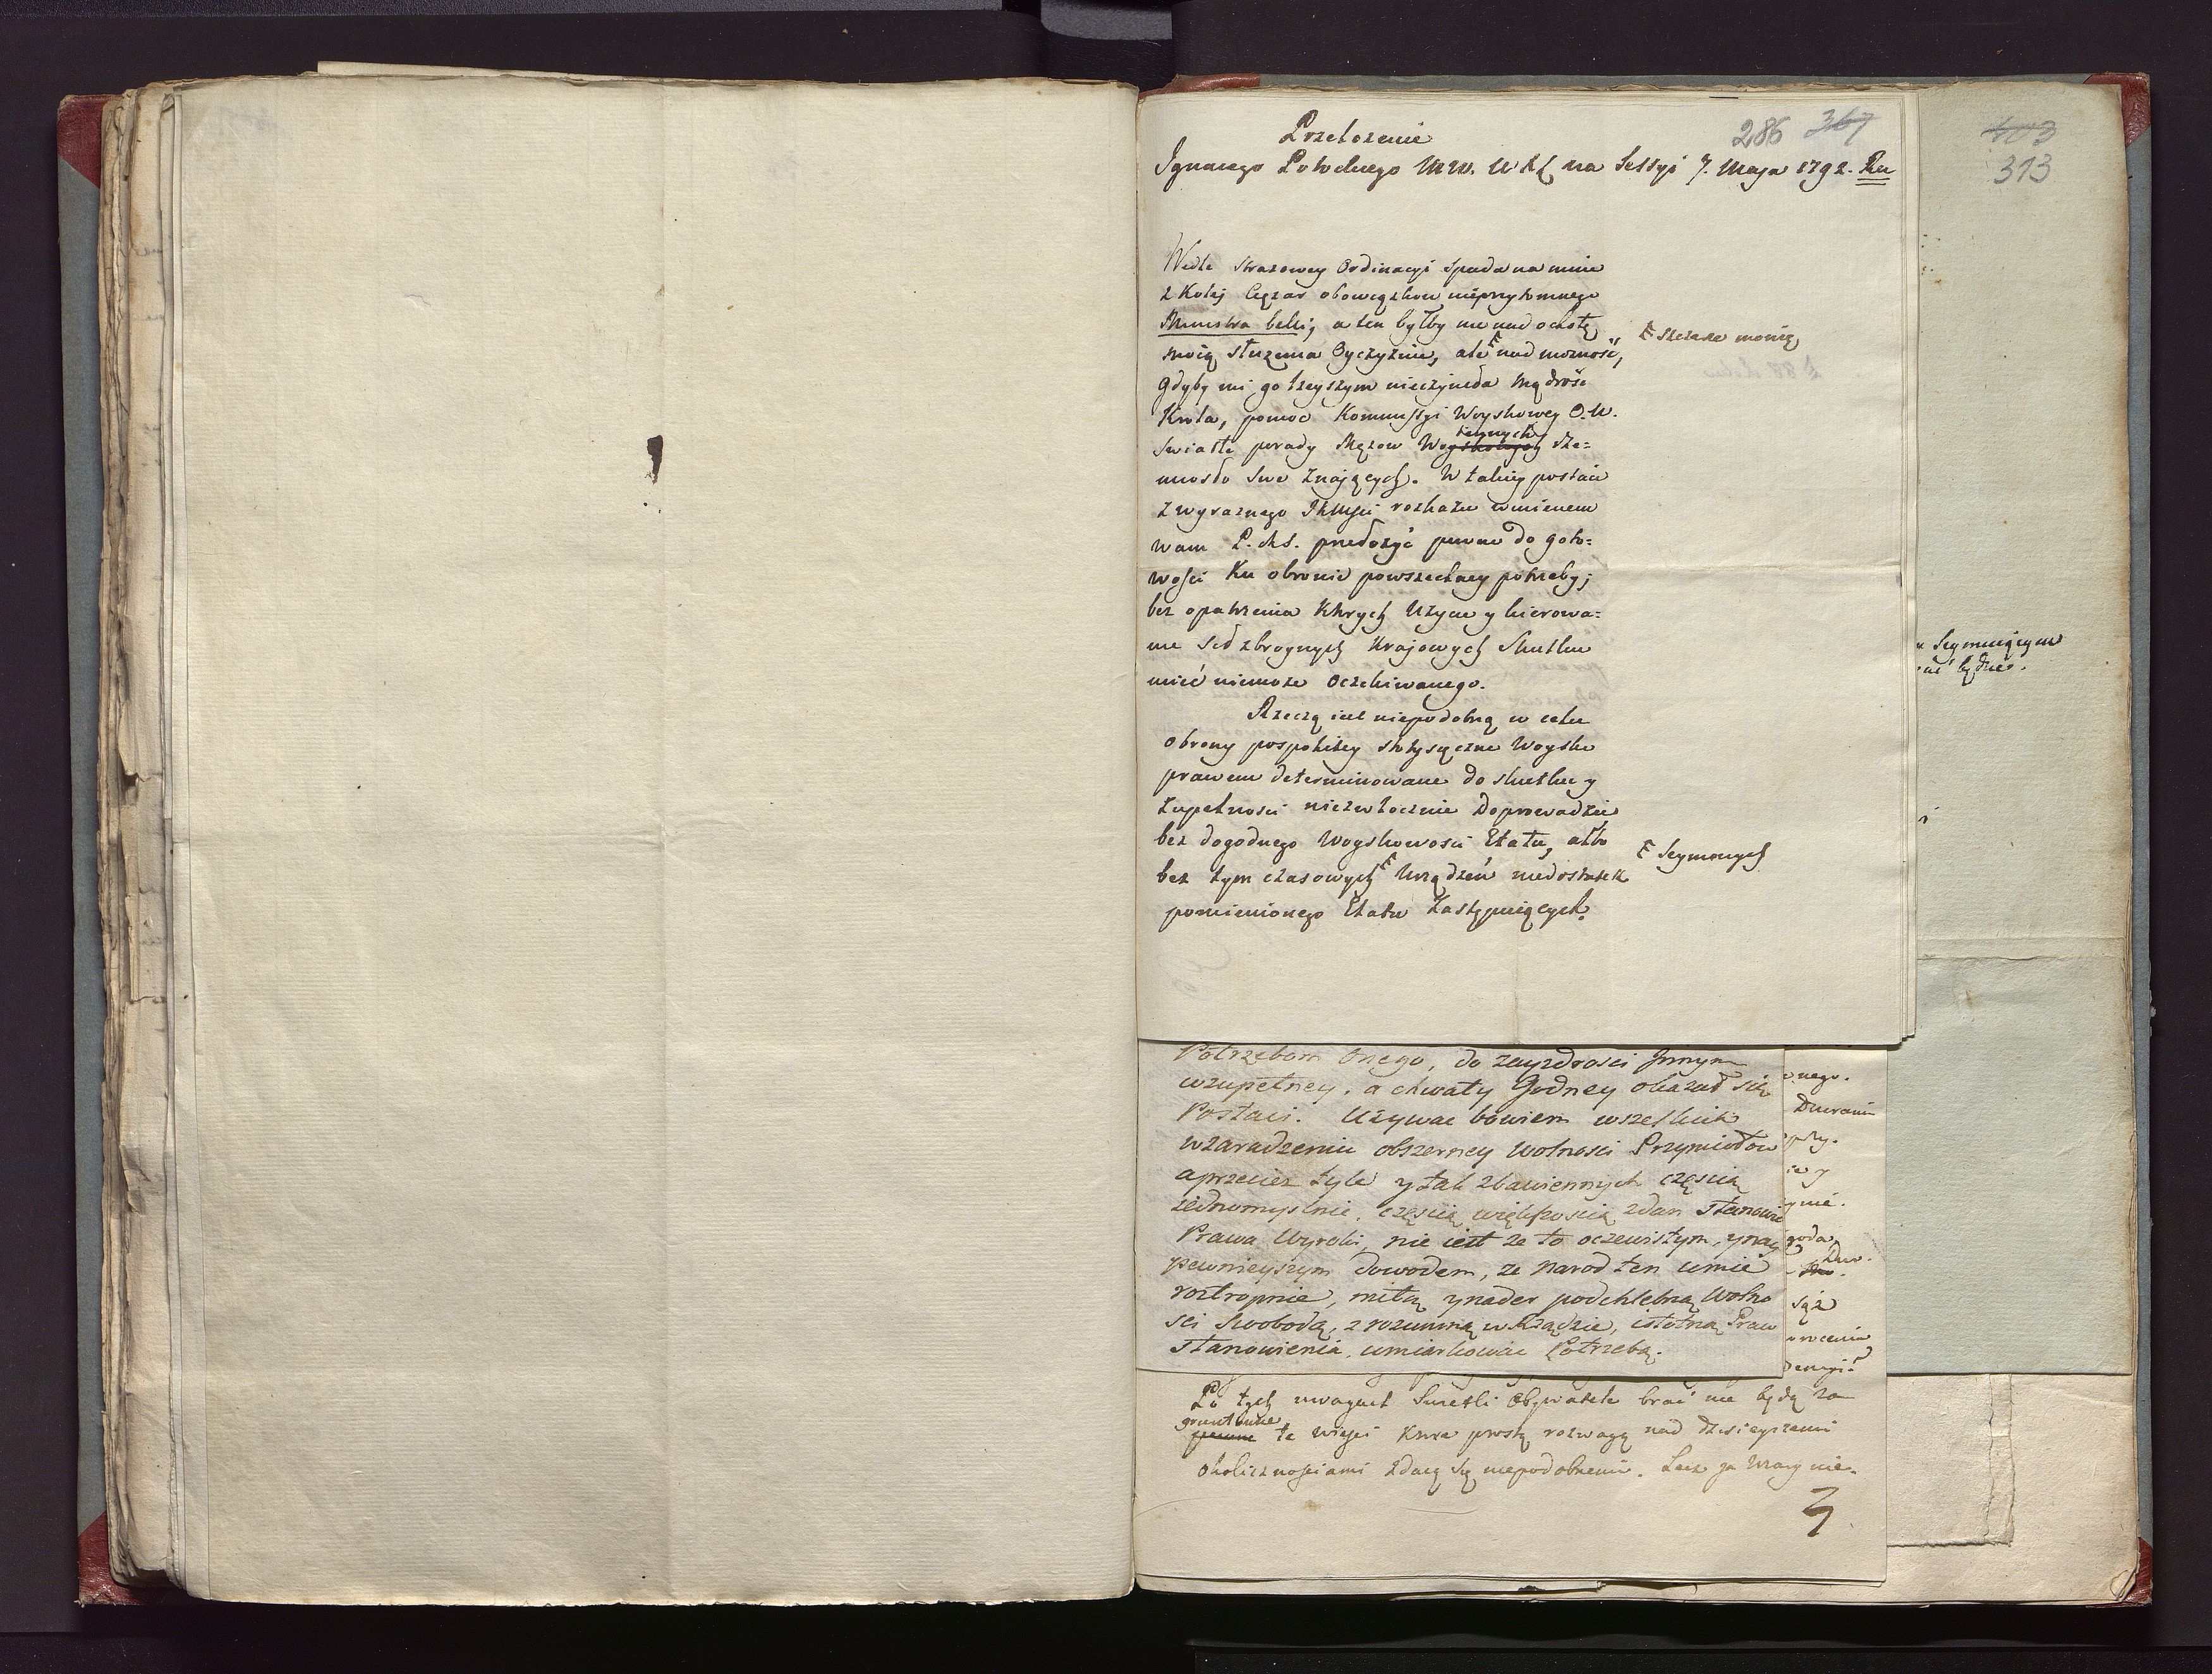 Przełożenie
286 367
Ignacego Potockiego M.W. W.X.L. na Sessyi 7. Maja 1792. Ru
403
313
Wedle strazowey Ordinacyi spada na mnie
z Koley Cięzar obowiązkow nieprzytomnego
Ministra belli, a ten byłby nie nad ochotę
F szczerze mowię
moią słuzenia Oyczyznie, ale F nad moznosć,
gdyby mi go lzeyszym nieczyniła mądrość
Krola, pomoc Kommissyi Woyskowey O.N.
swiatłe porady Mężow Woyskowych rze=
miosło swe znających. W takiey postaci
z wyraznego JKMsci rozkazu winienem
wam P. Ms. przełożyć pewne do goto=
wosci ku obronie powszechney potrzeby;
bez opatrzenia Ktorych Uzycie y kierowa=
nie sił zbroynych Kraiowych Skutku
mieć niemoze oczekiwanego.
Rzeczą iest niepodobną w celu
obrony pospolitey stotysięczne Woysko
prawem determinowane do skutku y
zupełnosci niezwłocznie doprowadzić
bez dogodnego Woyskowosci Etatu, albo
F Seymowych
bez tym czasowych F Urządzeń niedostatek
pomienionego Etatu zastępuiących.
Seymuiącym
będzie.
Potrzebom Onego, do zayzdrosci Innym
wzupełney, a chwały Godney okazał się
Postaci. Używac bowiem wszelkich
wzaradzeniu obszerney wolnosci Przymiotow
aprzeciez tyle y tak zbawiennych częscią
iednomyslnie, częscią większoscią zdan stanowić
Prawa Wyroki, nie iest ze to oczewistym, y nay
pewnieyszym dowodem, ze Narod ten umie
roztropnie, miłą ynader podchlebną Wolno
sci Swobodą, z rozumną w Rządzie, istotną Praw
stanowienia, umiarkowac Potrzebą.
Po tych uwagach Swiatli Obywatele brać nie będą za
gruntowne
pewne te wieści Ktore prostą rozwagą nad dzisieyszemi
okolicznosciami zdaią się niepodobnemi. Lecz ja Wracy nie-